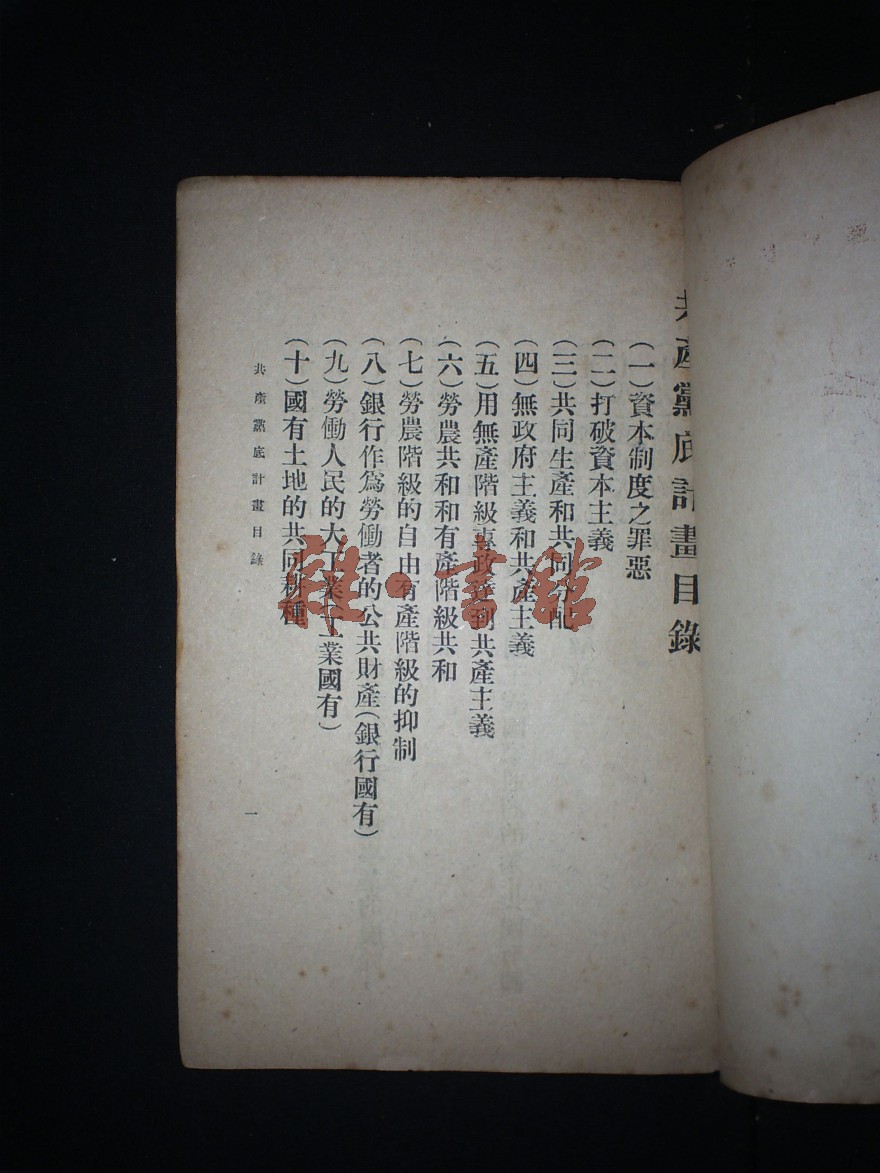 共產黨底計畫目錄
（一）資本制度之罪惡
（二）打破資本主義
（三）共同生產和共同分配
（四）無政府主義和共產主義
（五）用無產階級專政達到共產主義
（六）勞農共和和有產階級共和
（七）勞農階級的自由有產階級的抑制
（八）銀行作爲勞働者的公共財產（銀行國有）
（九）勞働人民的大工業（工業國有）
（十）國有土地的共同耕種
共產黨底計畫目錄
一
雜·書館